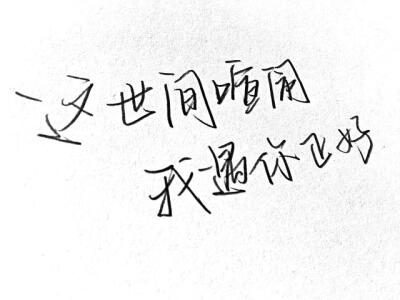 这世间喧闹
我遇你正好